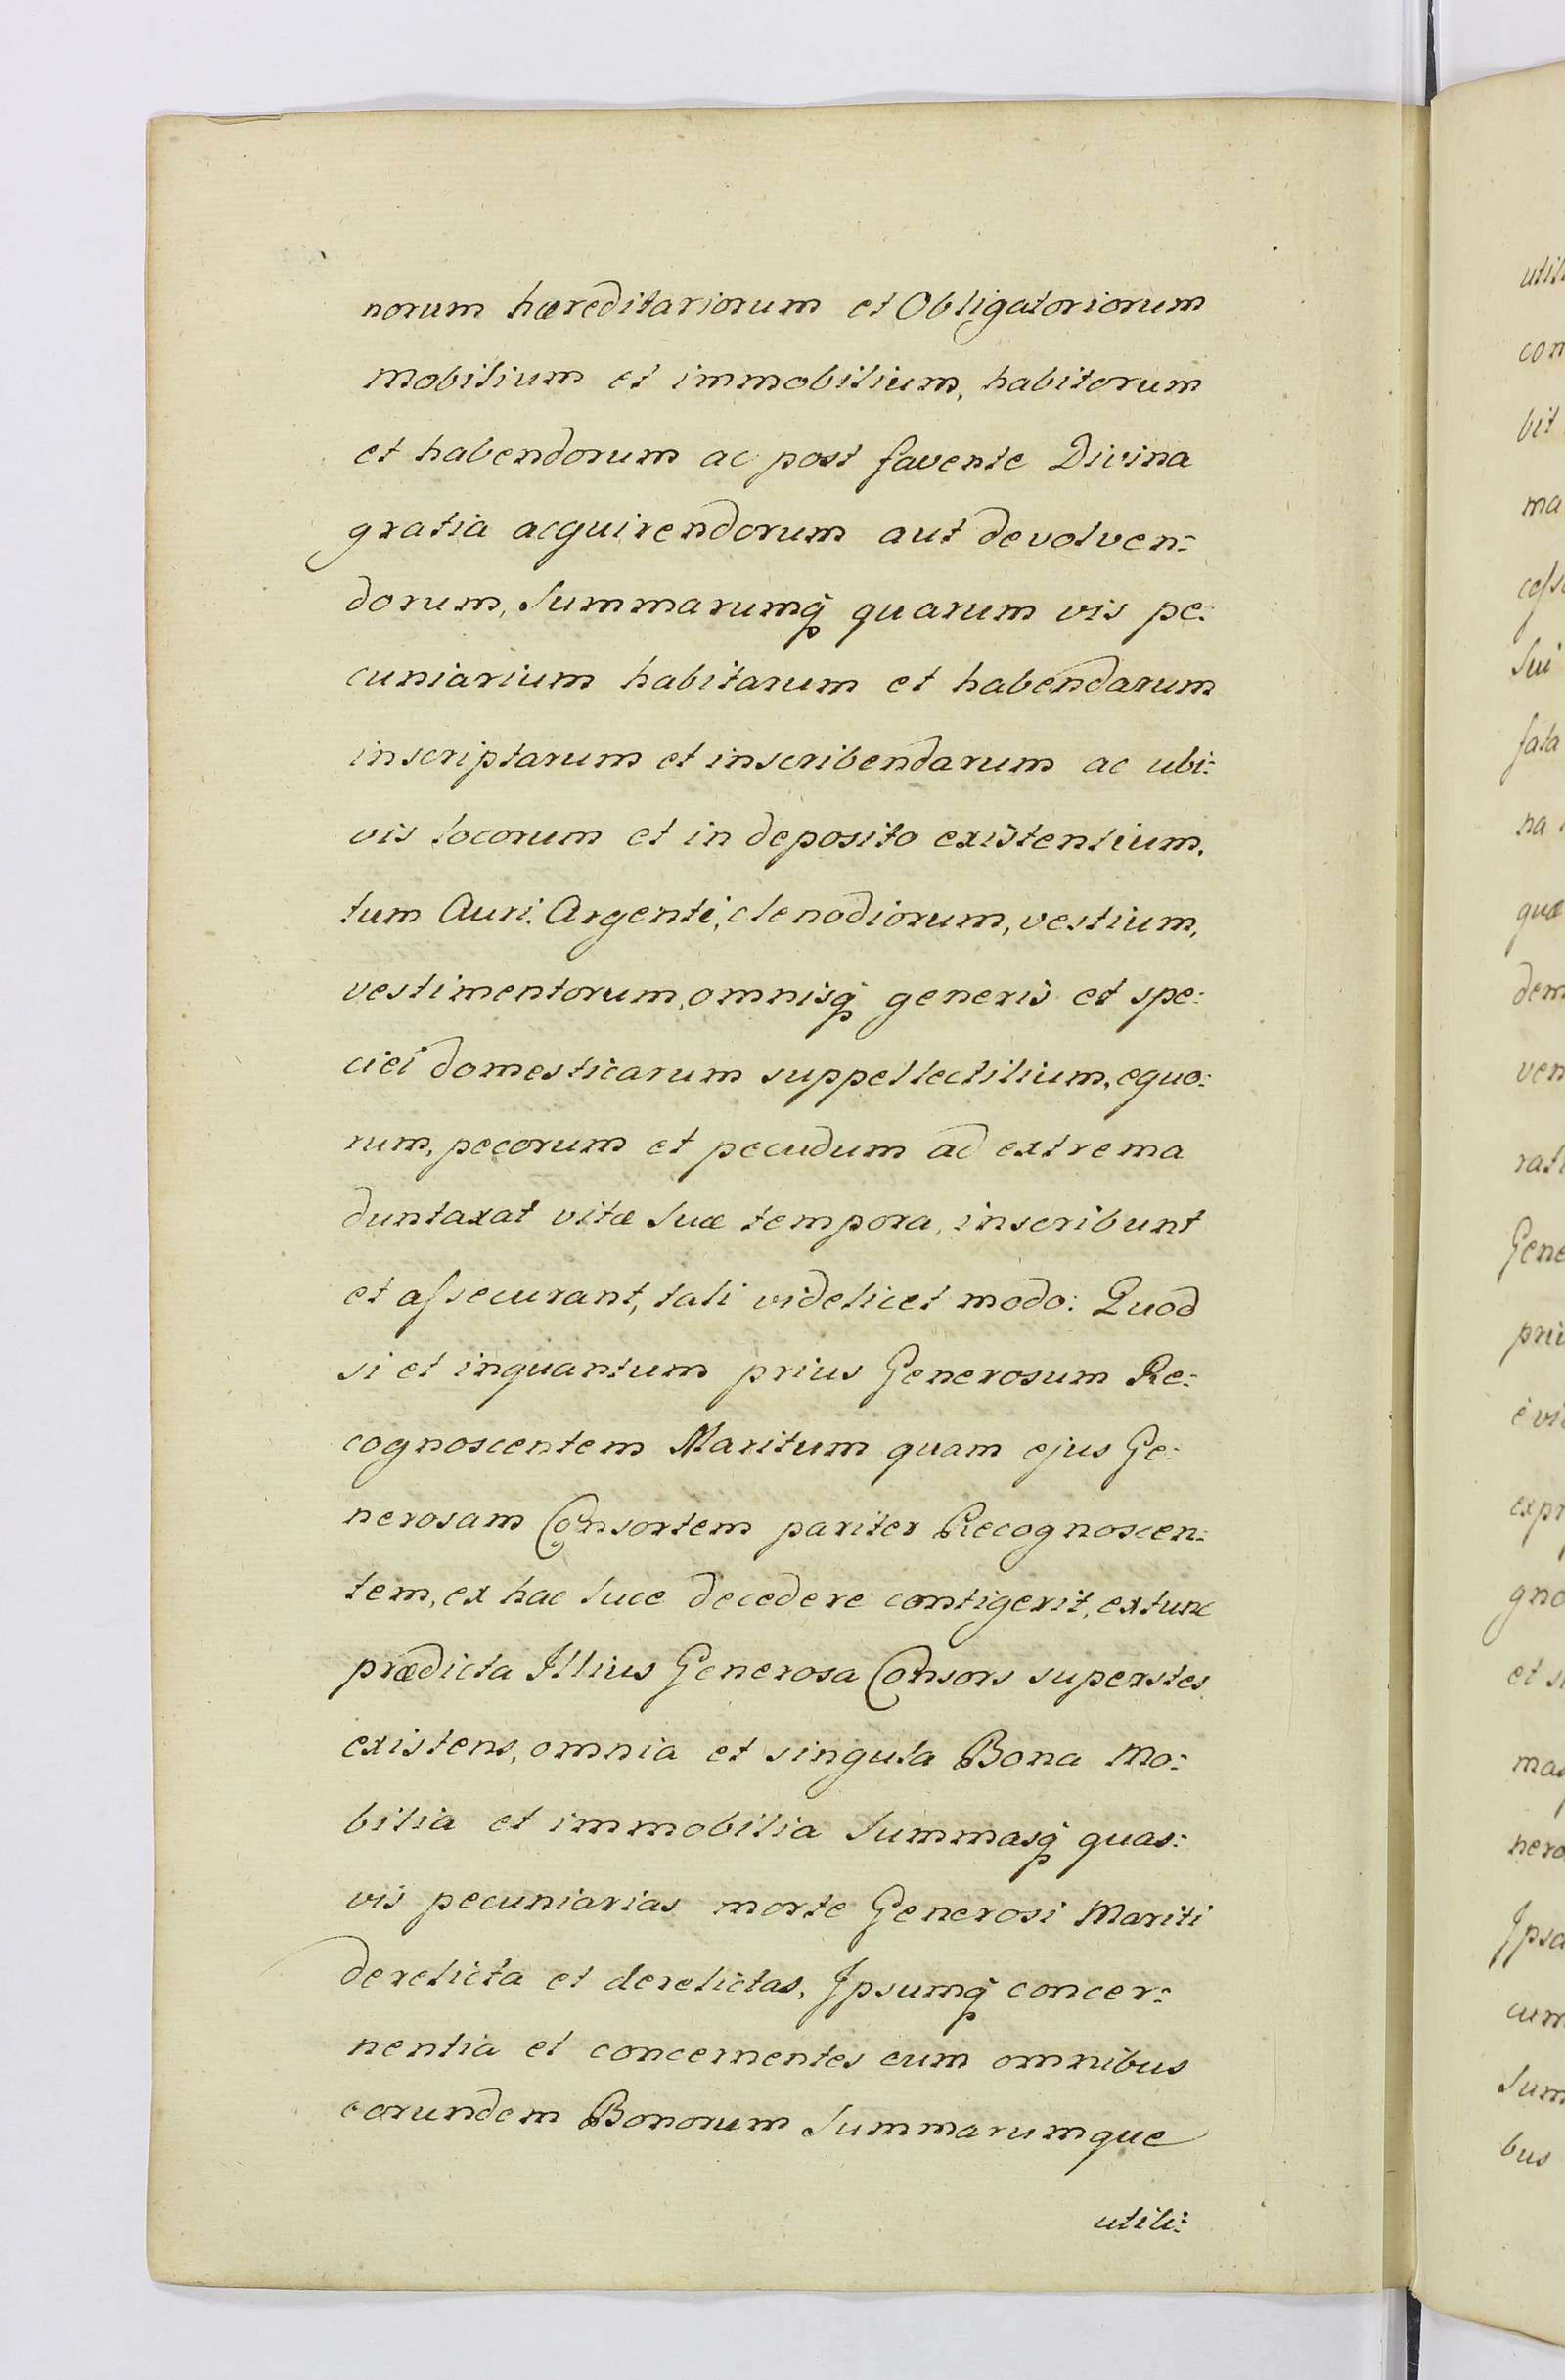 norum hæreditariorum et Obligatoriorum
Mobilium et immobilium, habitorum
et habendorum ac post favente Divina
gratia acquirendorum aut devolven:
dorum, Summarumq̃ quarum vis pe:
cuniarium habitarum et habendarum
inscriptarum et inscribendarum ac ubi:
vis locorum et in deposito existentium,
tum Auri, Argenti, clenodiorum, vestium,
vestimentorum, omnisq̃ generis et spe:
ciei domesticarum suppellectilium, equo:
rum, pecorum et pecudum ad extrema
duntaxat vitæ suæ tempora, inscribunt
et aſsecurant, tali videlicet modo: Quod
si et inquantum prius Generosum Re:
cognoscentem Maritum quam ejus Ge:
nerosam Consortem pariter Recognoscen:
tem, ex hac luce decedere contigerit, extunc
prædicta Illius Generosa Consors superstes
existens, omnia et singula Bona Mo:
bilia et immobilia Summasq̃ quas:
vis pecuniarias morte Generosi Mariti
derelicta et derelictas, Ipsumq̃ concer:
nentia et concernentes cum omnibus
eorundem Bonorum Summarumque
utili:
utili
con
bit
ma
Sui
fata
na
quæ
dem
ven
rati
Gene
priu
evi
expr
gno
et si
mag
nero
Ipsa
cum
Sum
bus